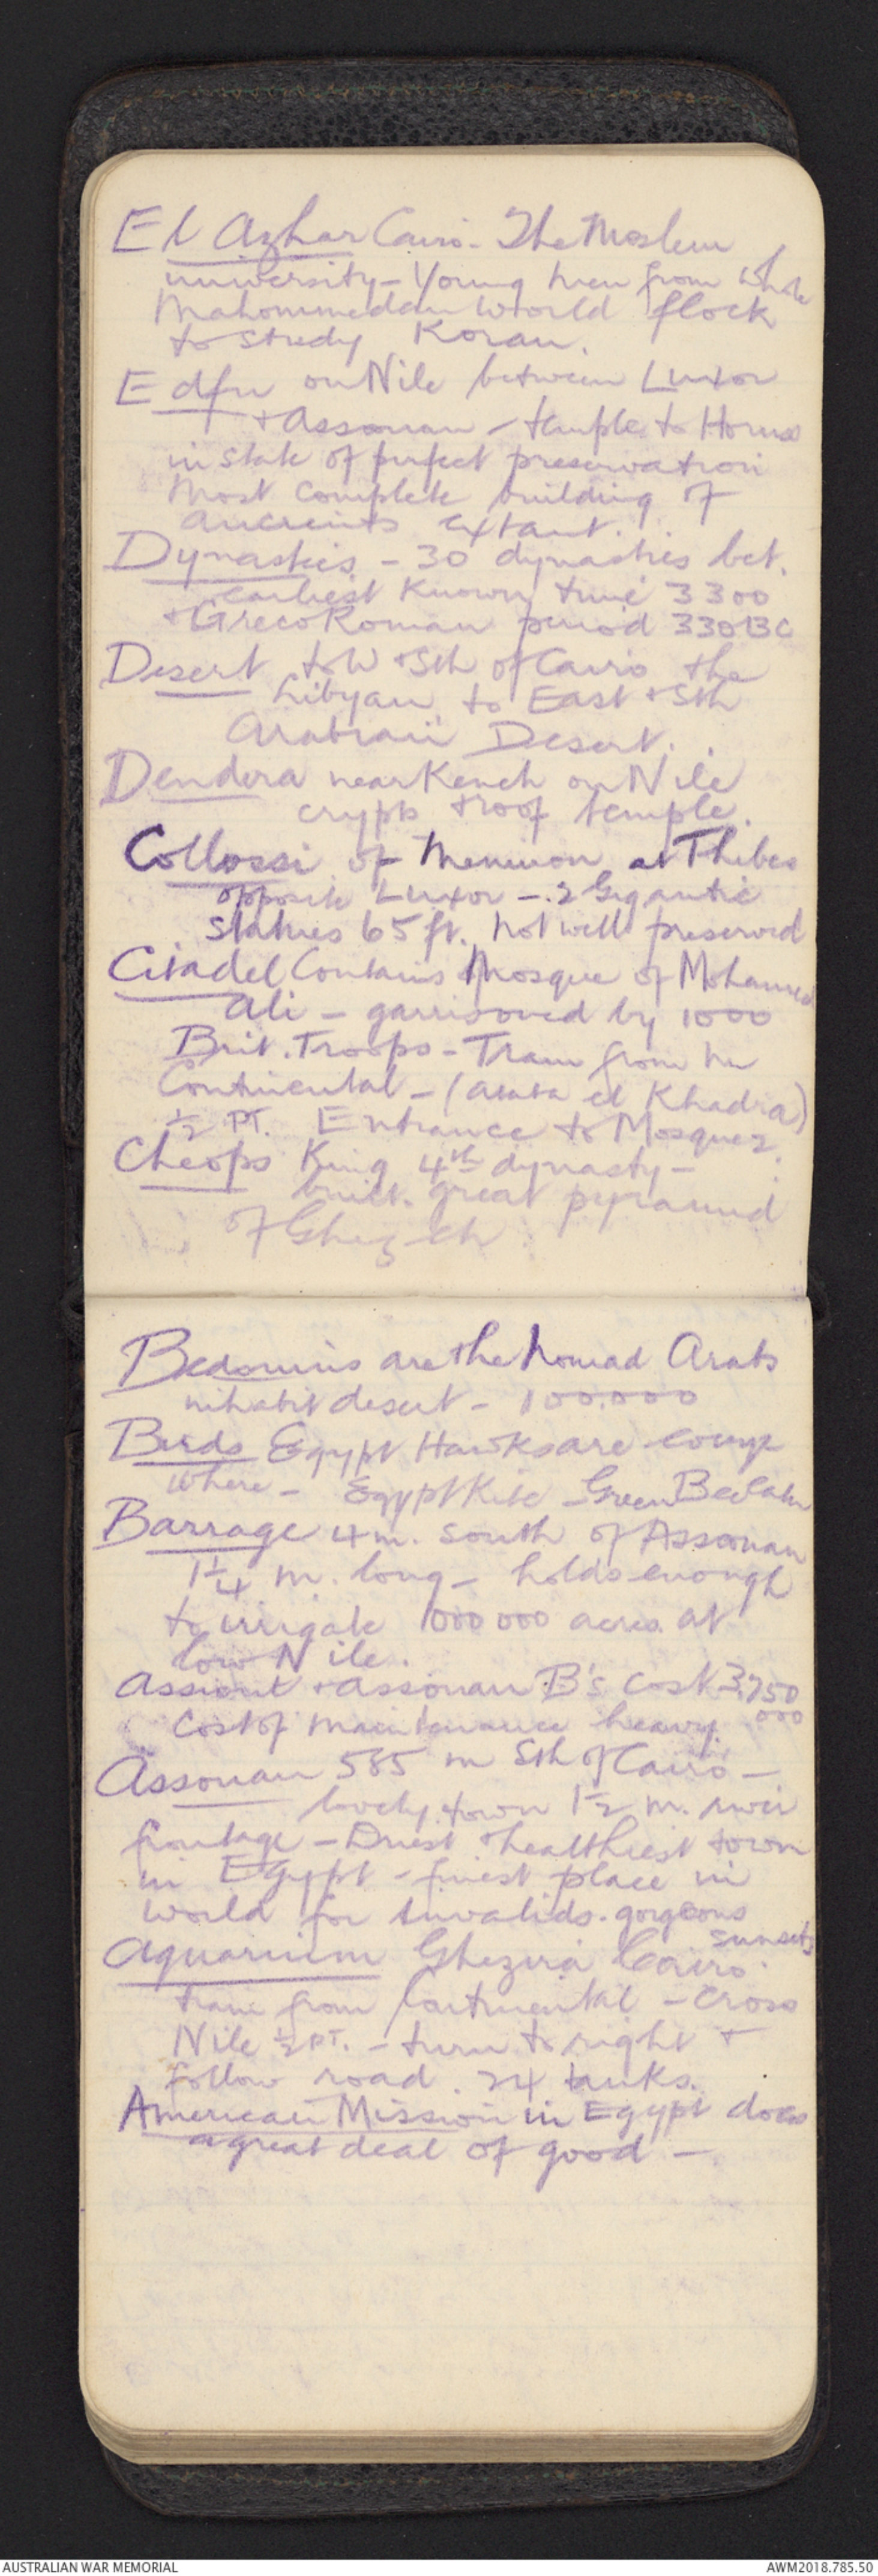 El Azhar Cairo. The Moslem
university - Young men from whole
Mahommedan world flock
to study Koran.
Edfu on Nile between Luxor
+ Assouan - temple to Horus
in state of perfect preservation
Most complete building of
ancients extant.
Dynasties - 30 dynasties bet.
earliest known time 3300
+ Greco Roman period 330 BC
Desert to W + Sth of Cairo the
Libyan to East + Sth
Arabian Desert.
Dendera near Keneh on Nile
crypts + roof temple.
Collossi of Memnon at Thibes
opposite Luxor - 2 Gigantic
Statues 65 ft. not well preserved
Citadel Contains Mosque of Mohamed
Ali - garrisoned by 1000
Brit. Troops - Tram from
Continental - (ataba el Khadra)
½ PT. Entrance to Mosque 2
Cheops King 4th dynasty -
built great pyramid
of Ghezeh
Bedouins are the Nomad Arabs
inhabit desert - 100,000
Birds Egypt Hawks are every
where - Egypt Kite - Green
Barrage 4 m. south of Assouan
1¼ m. long - holds enough
to irrigate 1000 000 acres at
low Nile.
Assiout + Assouan B's cost 3,750
000
Cost of maintenance heavy
Assouan 585 m Sth of Cairo -
lovely town 1½ m. river
frontage - Driest + healthiest town
in Egypt - finest place in
world for invalids. gorgeous
sunsets
Aquarium Ghezira Cairo.
tram from Continental - Cross
Nile ½ PT. - turn to right +
follow road. 24 tanks.
American Mission in Egypt does
a great deal of good -
AUSTRALIAN WAR MEMORIAL
AWM2018.785.50